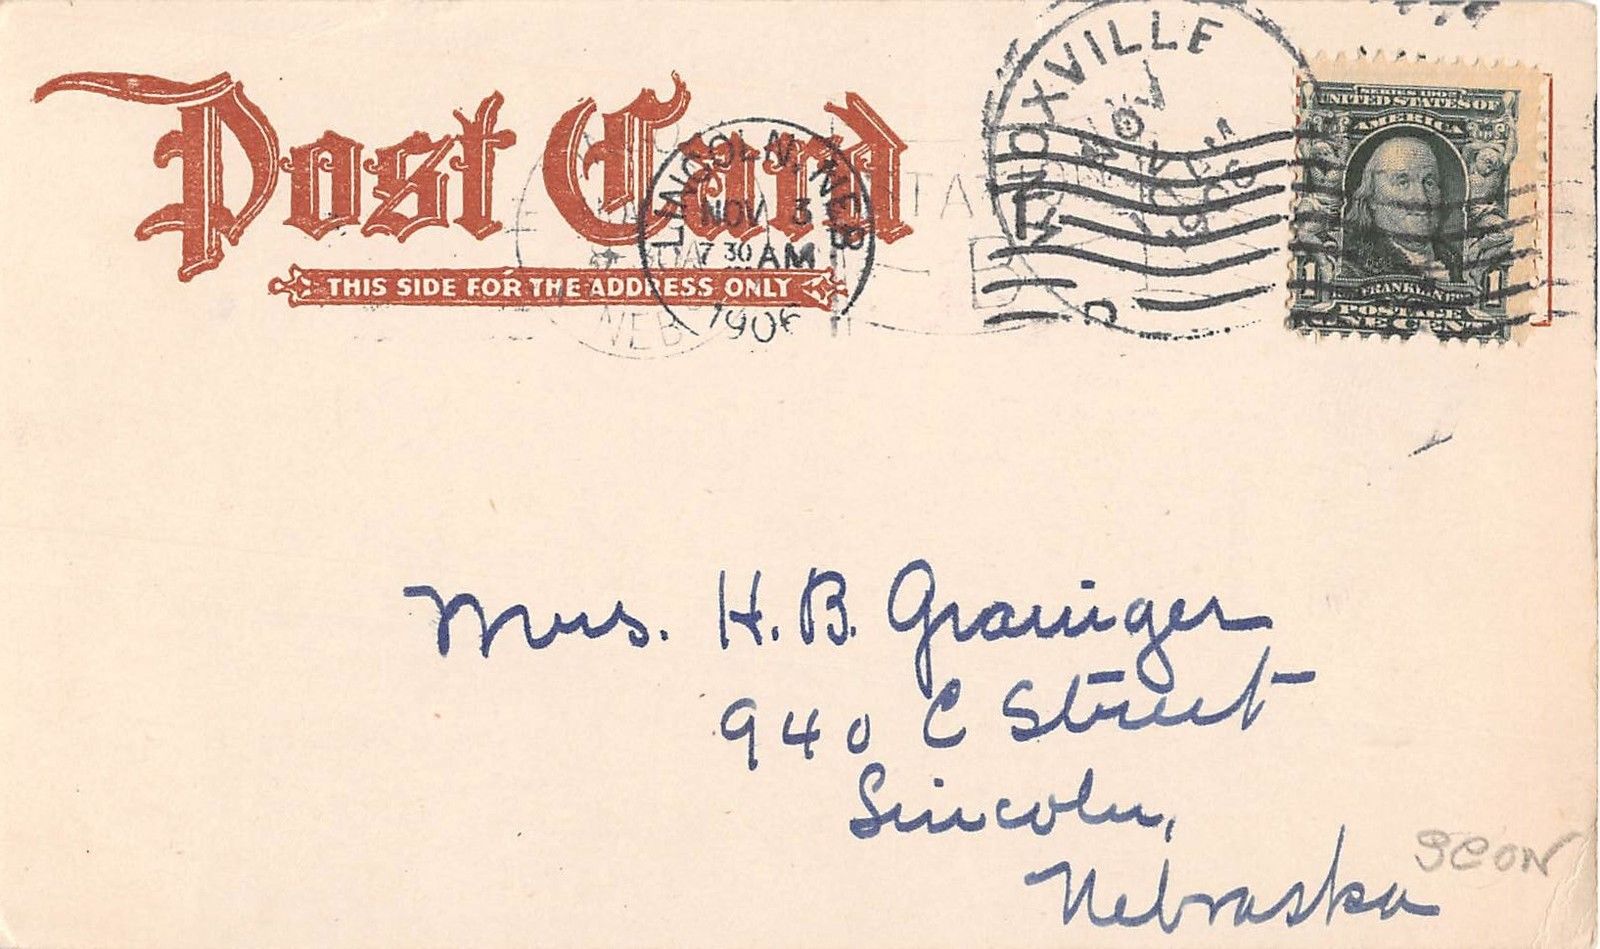 Post Card
THIS SIDE FOR THE ADDRESS ONLY
LINCOLN, NEB.
NOV 3
7 30 AM
1906
KNOXVILLE
NOV
1906
SERIES 1902
UNITED STATES OF
AMERICA
FRANKLIN
1 1
POSTAGE
ONE CENT
NEB
Mrs. H. B. Grainger
940 C Street
Lincoln,
Nebraska